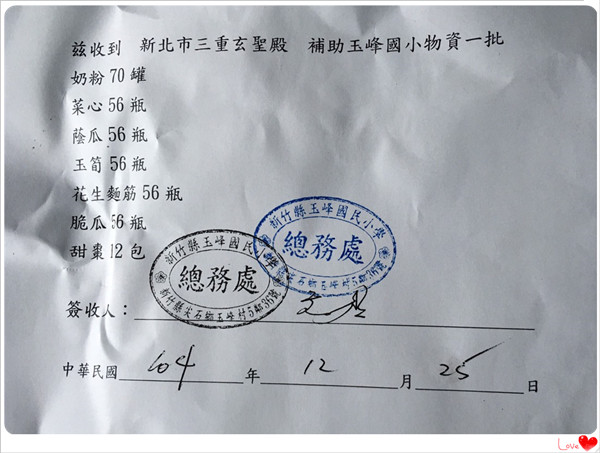 茲收到 新北市三重玄聖殿 補助玉峰國小物資一批
奶粉 70 罐
菜心 56 瓶
蔭瓜 56 瓶
玉筍 56 瓶
花生麵筋 56 瓶
脆瓜 56 瓶
甜棗 12 包
新竹縣玉峰國民小學
總務處
新竹縣尖石鄉玉峰村5鄰36號
新竹縣玉峰國民小學
總務處
新竹縣尖石鄉玉峰村5鄰36號
簽收人：
中華民國 104 年 12 月 25 日
Love